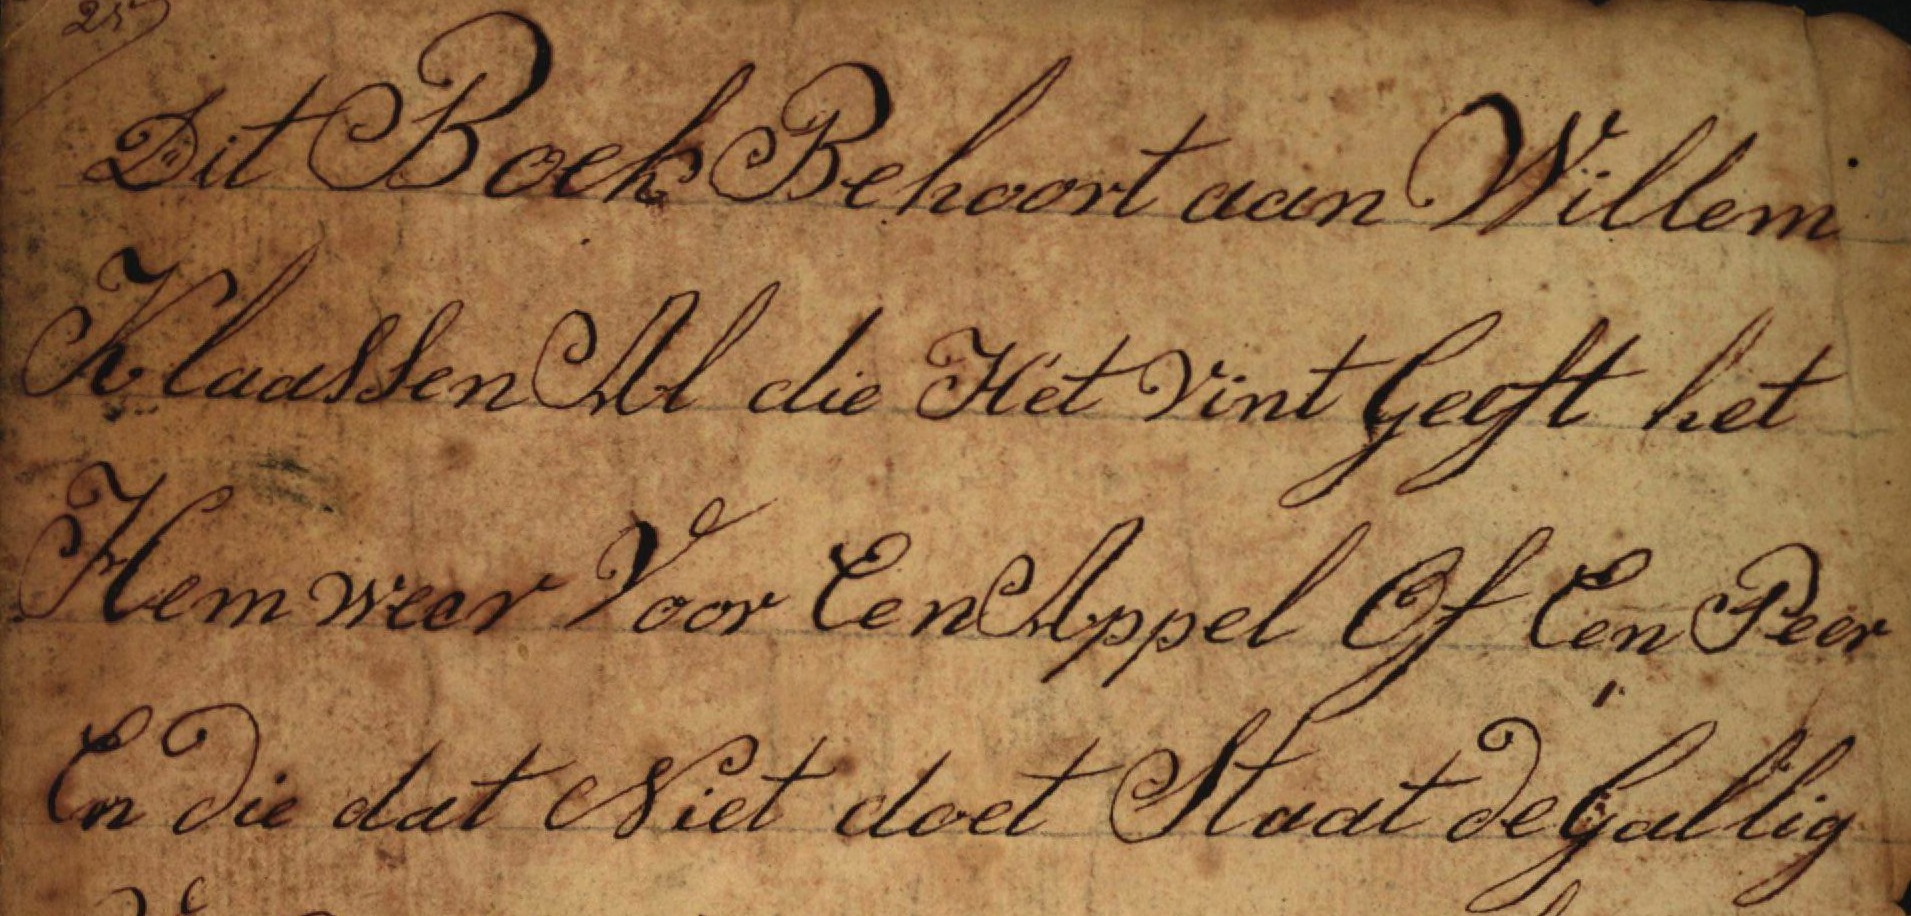 25
Dit Boek Behoort aan Willem
Klaassen Al die Het vint Geeft het
Hem weer Voor Een Appel Of Een Peer
En die dat Niet doet Staat de Gallig